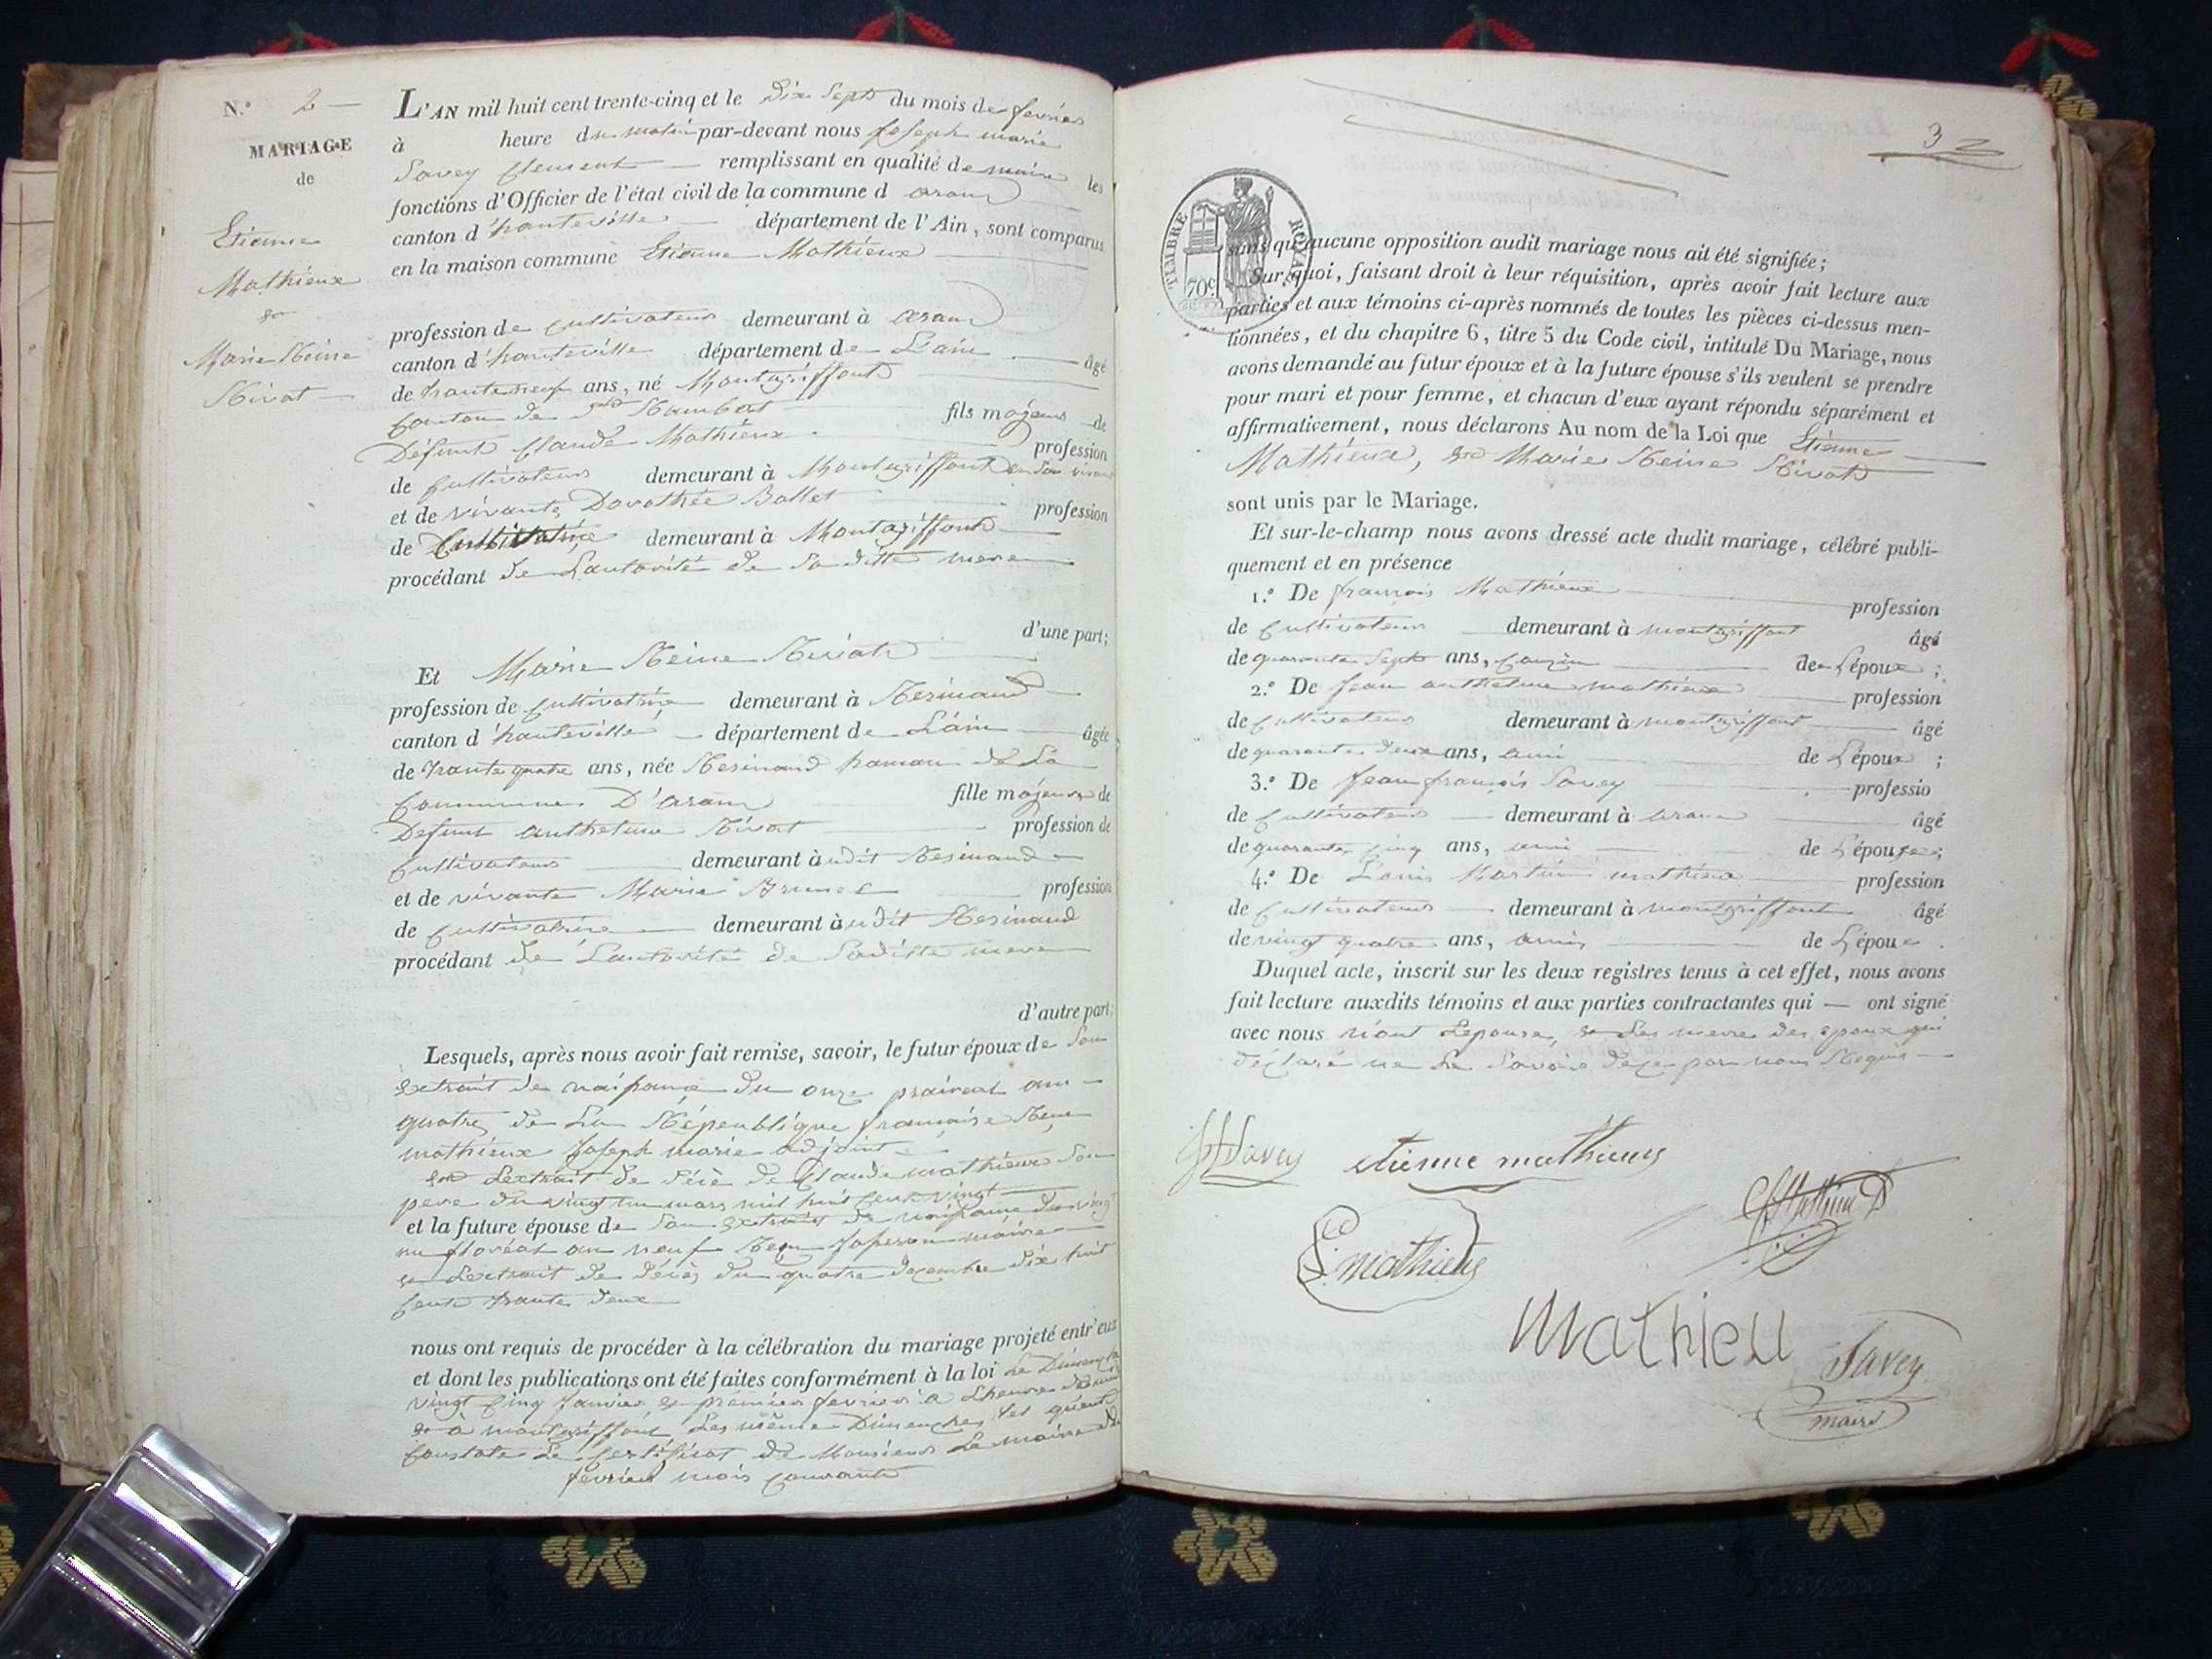 N.° 2
MARIAGE
de
Etienne
Mathieux
&
Marie Reine
Nivat
L'AN mil huit cent trente-cinq et le Dix Sept du mois de fevrier
à heure du matin par-devant nous Joseph marie
Savey Clement remplissant en qualité de maire les
fonctions d'Officier de l'état civil de la commune d aran
canton d'hauteville département de l'Ain, sont comparus
en la maison commune Etienne Mathieux
profession de cultivateur demeurant à aran
canton d'hauteville département de L'ain âgé
de trante neuf ans, né Montgriffont
Canton de St Rambert fils majeur de
Défunt Claude Mathieux profession
de Cultivateur demeurant à Montgriffont en son vivant
et de vivante Dorothée Ballet profession
de Cultivatrice demeurant à Montgriffont
procédant de Lautorité de Sa ditte mere
d'une part;
Et Marie Reine Nivat
profession de cultivatrice demeurant à Resinand
canton d'hauteville département de L'ain âgée
de trante quatre ans, née Resinand hamau de La
Commune D'aran fille majeure de
Defunt anthelme Nivat profession de
Cultivateur demeurant audit Resinand
et de vivante Marie Brunet profession
de cultivatrice demeurant audit Resinand
procédant de Lautorité de Saditte mere
d'autre part;
Lesquels, après nous avoir fait remise, savoir, le futur époux de Son
Extrait de naissance du onze praireal an
quatre de La République francaise
mathieux Joseph marie adjoint
Lextrait de décè de Claude mathieux Son
pere du vingt un mars mil huit cent vingt
et la future épouse de Son Extrait de naissance du vingt
un floréal an neuf maire
Lextrait de décès du quatre decembre dix huit
cent trante deux
nous ont requis de procéder à la célébration du mariage projeté entr'eux
et dont les publications ont été faites conformément à la loi Le Dimanche
vingt cinq Janvier & premier fevrier a Lheure de midi
& à montgriffont Les même Dimenches tel quent
Constate Le Certificat de Monsieur Le maire du
fevrier mois courant
3
TIMBRE ROYAL
70c
sans qu'aucune opposition audit mariage nous ait été signifiée;
Sur quoi, faisant droit à leur réquisition, après avoir fait lecture aux
parties et aux témoins ci-après nommés de toutes les pièces ci-dessus men-
tionnées, et du chapitre 6, titre 5 du Code civil, intitulé Du Mariage, nous
avons demandé au futur époux et à la future épouse s'ils veulent se prendre
pour mari et pour femme, et chacun d'eux ayant répondu séparément et
affirmativement, nous déclarons Au nom de la Loi que Etienne
Mathieux, & Marie Reine Nivat
sont unis par le Mariage.
Et sur-le-champ nous avons dressé acte dudit mariage, célébré publi-
quement et en présence
1.° De francois Mathieux profession
de Cultivateur demeurant à montgriffont âgé
de quarante Sept ans, Cousin de Lépoux ;
2.° De Jean anthelme mathieux profession
de Cultivateur demeurant à montgriffont âgé
de quarante deux ans, ami de Lépoux ;
3.° De Jean françois Savey professio
de Cultivateur demeurant à aran âgé
de quarante cinq ans, ami de Lépouse;
4.° De Louis Martin mathieux profession
de Cultivateur demeurant à montgriffont âgé
de vingt quatre ans, amis de Lépoux .
Duquel acte, inscrit sur les deux registres tenus à cet effet, nous avons
fait lecture auxdits témoins et aux parties contractantes qui ont signé
avec nous n'ont Lepouse, & Les mere des epoux qui
déclaré ne Le Savoir de ce par nous Requis
Savey etienne mathieux
mathieux
Mathieu
Savey
maire